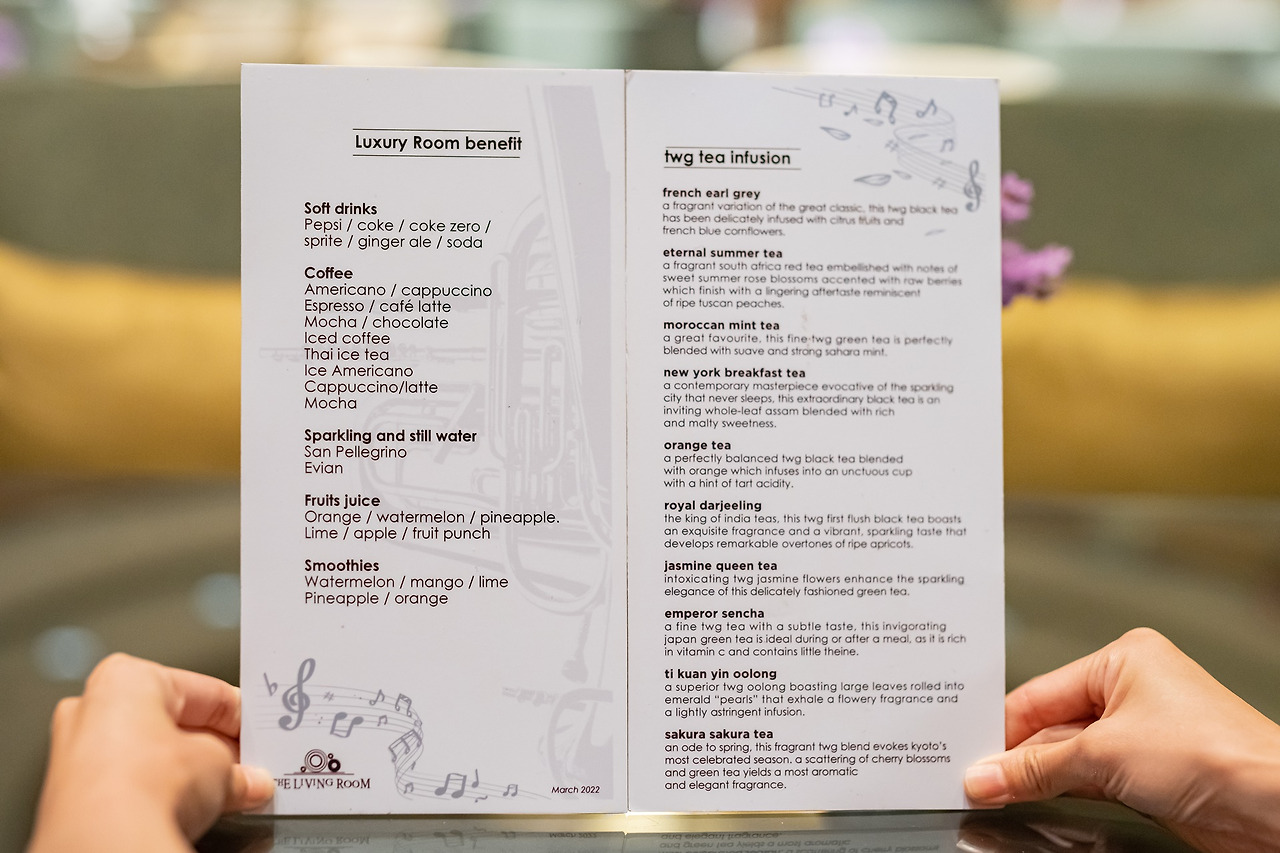 Luxury Room benefit
Soft drinks
Pepsi / coke / coke zero /
sprite / ginger ale / soda
Coffee
Americano / cappuccino
Espresso / café latte
Mocha / chocolate
Iced coffee
Thai ice tea
Ice Americano
Cappuccino/latte
Mocha
Sparkling and still water
San Pellegrino
Evian
Fruits juice
Orange / watermelon / pineapple.
Lime / apple / fruit punch
Smoothies
Watermelon / mango / lime
Pineapple / orange
THE LIVING ROOM
March 2022
twg tea infusion
french earl grey
a fragrant variation of the great classic, this twg black tea
has been delicately infused with citrus fruits and
french blue cornflowers.
eternal summer tea
a fragrant south africa red tea embellished with notes of
sweet summer rose blossoms accented with raw berries
which finish with a lingering aftertaste reminiscent
of ripe tuscan peaches.
moroccan mint tea
a great favourite, this fine twg green tea is perfectly
blended with suave and strong sahara mint.
new york breakfast tea
a contemporary masterpiece evocative of the sparkling
city that never sleeps, this extraordinary black tea is an
inviting whole-leaf assam blended with rich
and malty sweetness.
orange tea
a perfectly balanced twg black tea blended
with orange which infuses into an unctuous cup
with a hint of tart acidity.
royal darjeeling
the king of india teas, this twg first flush black tea boasts
an exquisite fragrance and a vibrant, sparkling taste that
develops remarkable overtones of ripe apricots.
jasmine queen tea
intoxicating twg jasmine flowers enhance the sparkling
elegance of this delicately fashioned green tea.
emperor sencha
a fine twg tea with a subtle taste, this invigorating
japan green tea is ideal during or after a meal, as it is rich
in vitamin c and contains little theine.
ti kuan yin oolong
a superior twg oolong boasting large leaves rolled into
emerald “pearls” that exhale a flowery fragrance and
a lightly astringent infusion.
sakura sakura tea
an ode to spring, this fragrant twg blend evokes kyoto’s
most celebrated season. a scattering of cherry blossoms
and green tea yields a most aromatic
and elegant fragrance.